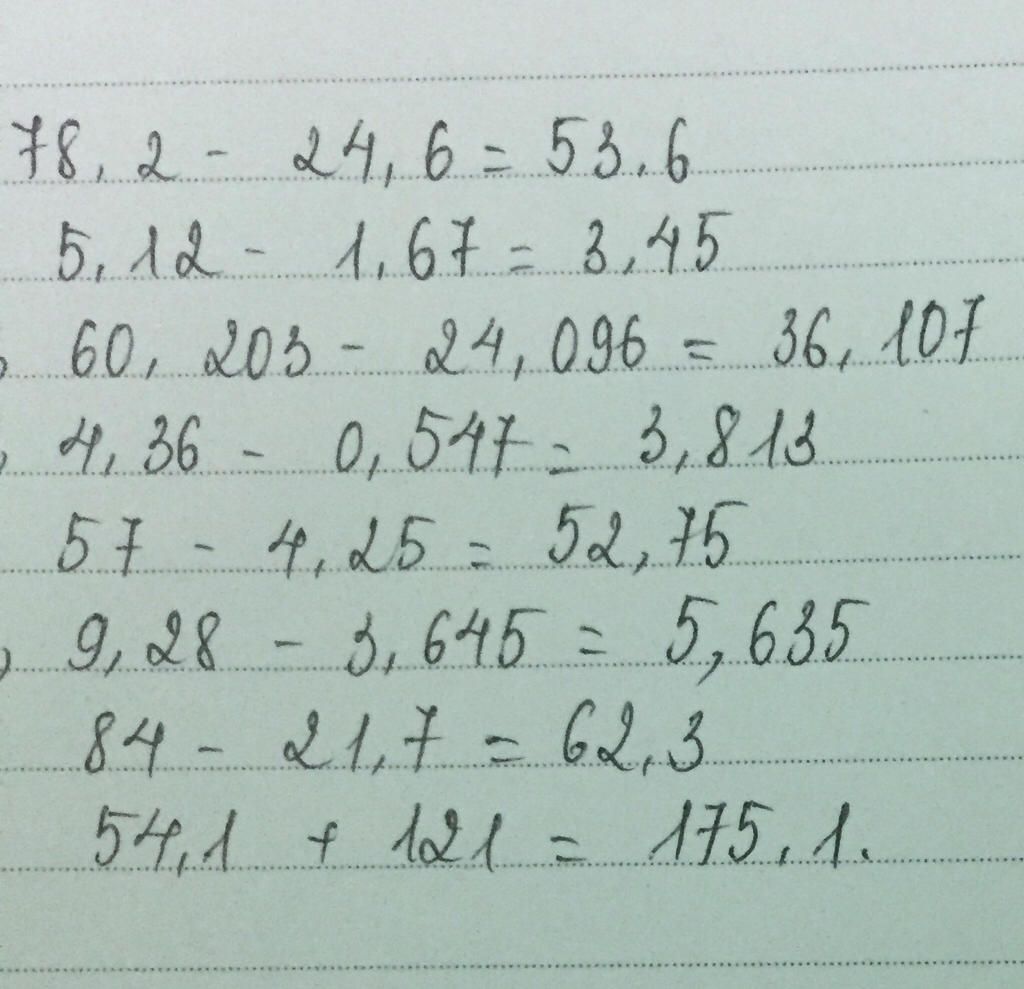 78,2 - 24,6 = 53,6
5,12 - 1,67 = 3,45
60,203 - 24,096 = 36,107
4,36 - 0,547 = 3,813
57 - 4,25 = 52,75
9,28 - 3,645 = 5,635
84 - 21,7 = 62,3
54,1 + 121 = 175,1.